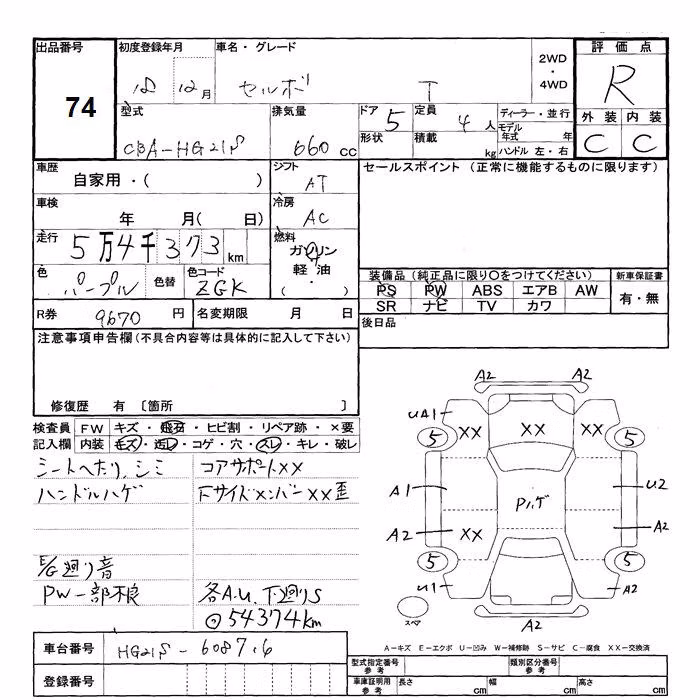 出品番号
74
初度登録年月
18 12月
車名・グレード
セルボ T
2WD
・
4WD
評価点
R
外装 内装
C C
型式
CBA-HG21S
排気量
660 cc
ドア 5
形状
定員 4人
積載 kg
ディーラー・並行
モデル年式 年
ハンドル 左・右
車歴
自家用・( )
シフト
AT
車検
年 月(日 )
冷房
AC
走行
5万4千373km
燃料
ガソリン
軽油
( ・ )
色
パープル
色替
色コード
ZGK
R券 9670 円
名変期限 月 日
セールスポイント (正常に機能するものに限ります)
装備品(純正品に限り○をつけてください)
PS PW ABS エアB AW
SR ナビ TV カワ
新車保証書
有・無
後日品
注意事項申告欄(不具合内容等は具体的に記入して下さい)
修復歴 有 〔箇所 〕
検査員記入欄
FW キズ・飛石・ヒビ割・リペア跡・×要
内装 キズ・汚レ・コゲ・穴・スレ・キレ・破レ
シートヘたり、シミ
ハンドルハゲ
E/G廻り音
PW一部不良
コアサポートXX
FサイドメンバーXX歪
各A.U. 下廻りS
◎54374km
A2 A2
UA1 XX XX XX
5 5
A1 Pハゲ U2
A2 XX A2
5 5
U1 A2
スペア
A2
A-キズ E-エクボ U-凹み W-補修跡 S-サビ C-腐食 XX-交換済
車台番号
HG21S-608716
登録番号
型式指定番号
参考
類別区分番号
参考
車庫証明用
参考
長さ cm 幅 cm 高さ cm